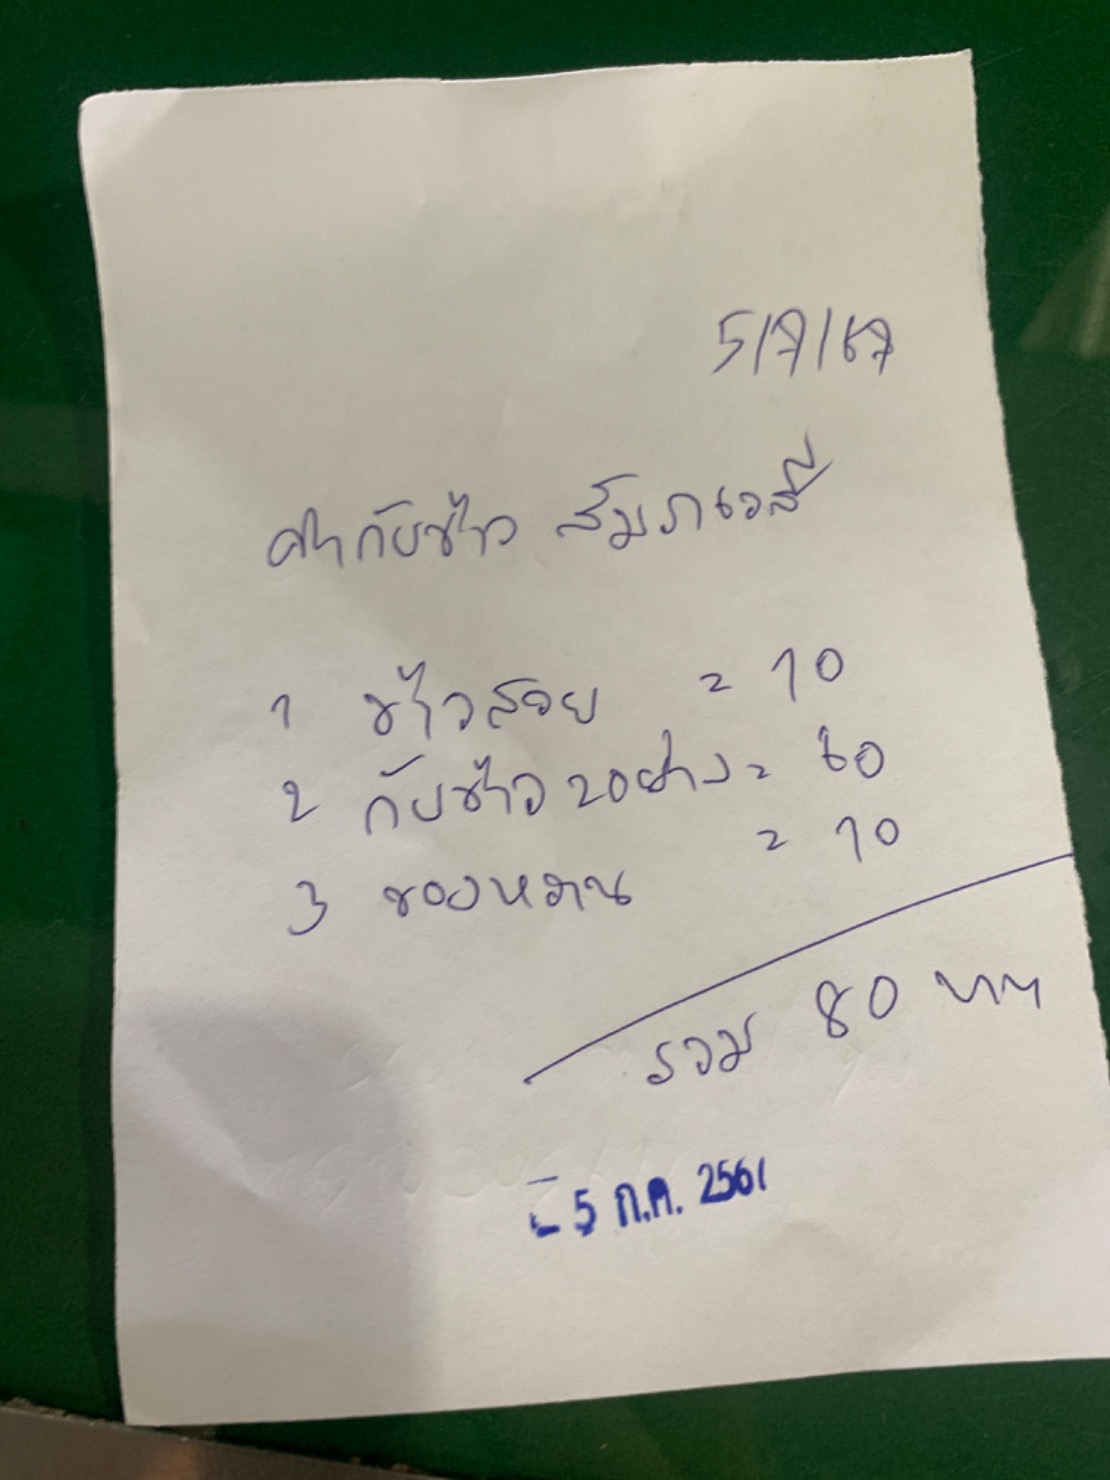 5/7/67
ค่ากับข้าว สัมภเวสี
1 ข้าวสวย = 10
2 กับข้าว 2อย่าง = 60
3 ของหวาน = 10
รวม 80 บาท
5 ก.ค. 2561